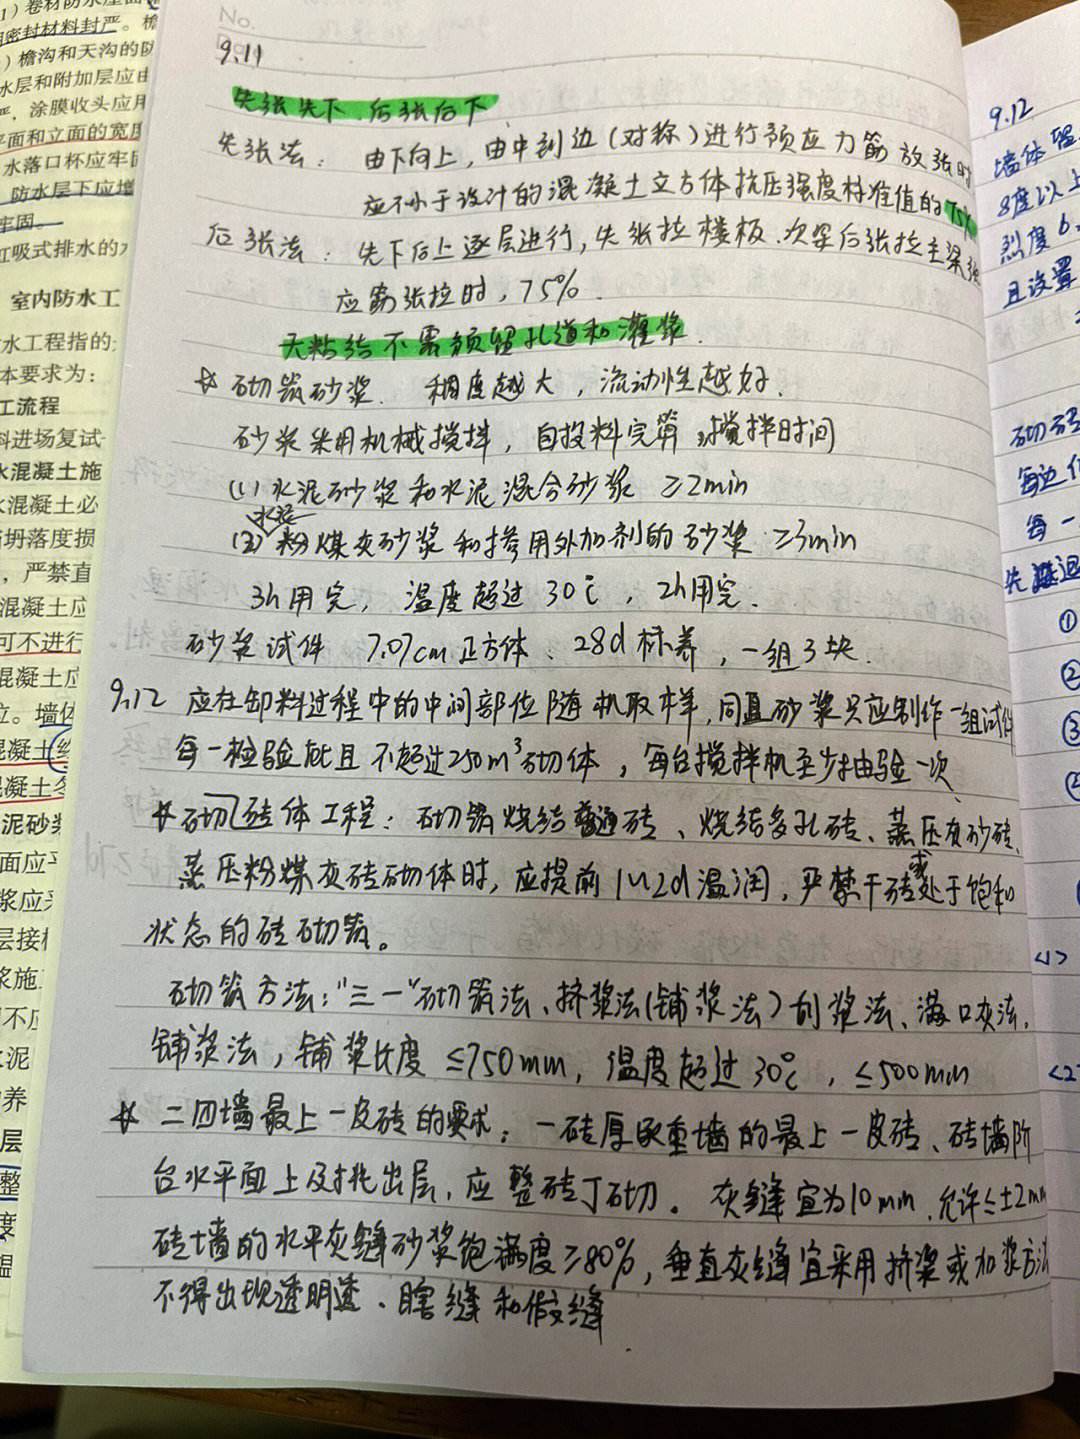 1）卷材防水屋面
密封材料封严。檐
）檐沟和天沟的防
水层和附加层应由
严，涂膜收头应用
平面和立面的宽度
水落口杯应牢固
防水层下应增
牢固。
虹吸式排水的
室内防水工
水工程指的
本要求为：
工流程
料进场复试
水混凝土施
混凝土必
坍落度损
，严禁直
混凝土应
可不进行
混凝土应
位。墙体
混凝土
混凝土冬
泥砂浆
面应平
浆应
层接
浆施
不应
水泥
养
层
整
度
温
No.
9.11
先张先下，后张后下
先张法：由下向上，由中到边(对称)进行预应力筋放张时
应不小于设计的混凝土立方体抗压强度标准值的75%
后张法：先下后上逐层进行，先张拉楼板、次梁后张拉主梁
应筋张拉时，75%.
无粘结不需预留孔道和灌浆.
☆砌筑砂浆. 稠度越大，流动性越好.
砂浆采用机械搅拌，自投料完算，搅拌时间
(1) 水泥砂浆和水泥混合砂浆 ≥2min
(2) 水泥粉煤灰砂浆和掺用外加剂的砂浆 ≥3min
3h用完，温度超过30℃，2h用完.
砂浆试件 7.07cm正方体、28d标养，一组3块.
9.12 应在卸料过程中的中间部位随机取样，同盘砂浆只应制作一组试件
每一检验批且不超过250m³砌体，每台搅拌机至少抽验一次
☆砌砖体工程：砌筑烧结普通砖、烧结多孔砖、蒸压灰砂砖、
蒸压粉煤灰砖砌体时，应提前1~2d温润，严禁干砖或处于饱和
状态的砖砌筑。
砌筑方法："三一"砌筑法、挤浆法(铺浆法)刮浆法、满口灰法.
铺浆法，铺浆长度≤750mm，温度超过30℃，≤500mm
☆ 二四墙最上一皮砖的要求：一砖厚承重墙的最上一皮砖、砖墙阶
台水平面上及挑出层，应整砖丁砌。灰缝宜为10mm，允许≤±2mm
砖墙的水平灰缝砂浆饱满度≥80%，垂直灰缝宜采用挤浆或加浆方法
不得出现透明透、瞎缝和假缝.
9.12
墙体留
8度以上
烈度6、
且设置
砌砖
每边
每一
先退
①
②
③
<1>
<2